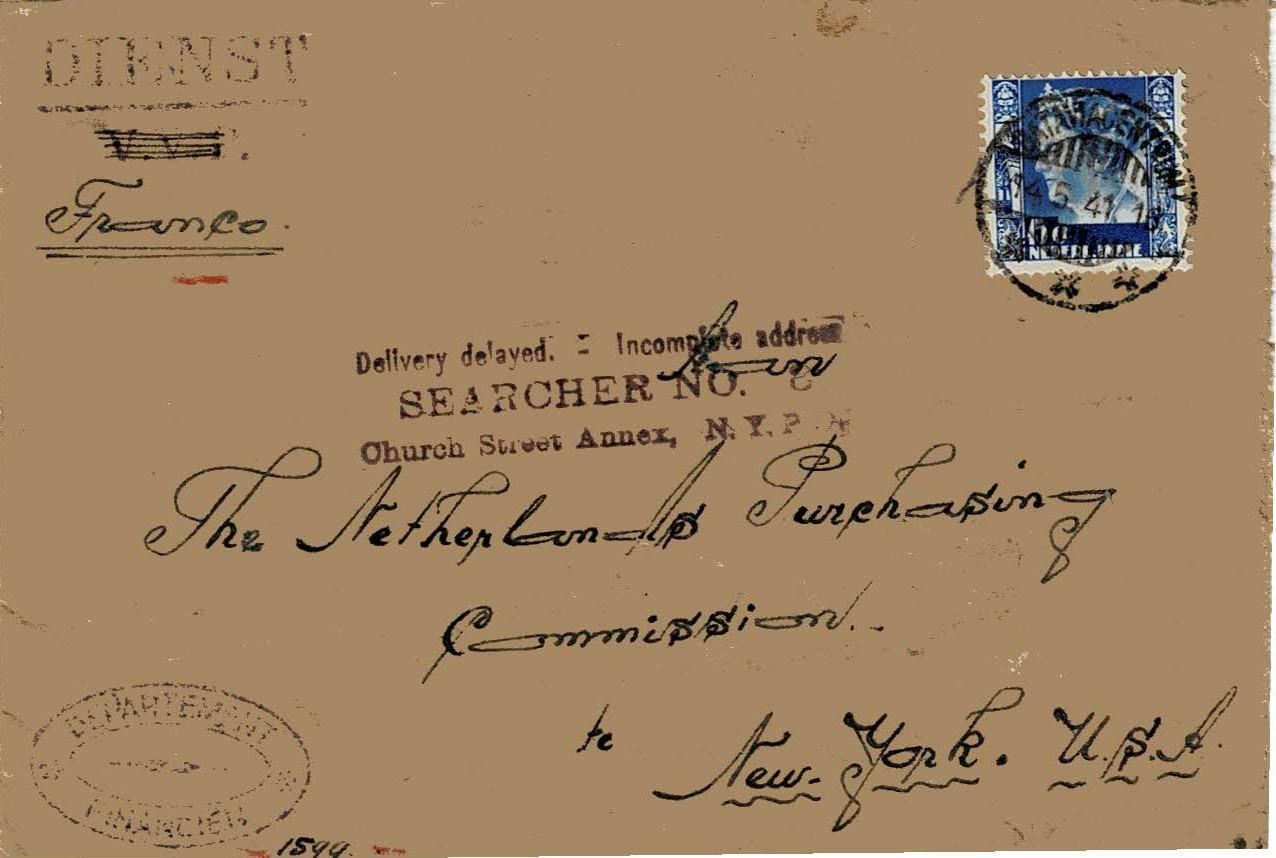 DIENST
V.V.
Franco.
14.5.41.
NED. INDIE
Delivery delayed. - Incomplete address
Aan
SEARCHER NO.
Church Street Annex, N.Y.P
The Netherlands Purchasing
Commission.
te New-York. U.S.A.
DEPARTEMENT
FINANCIEN
1599.